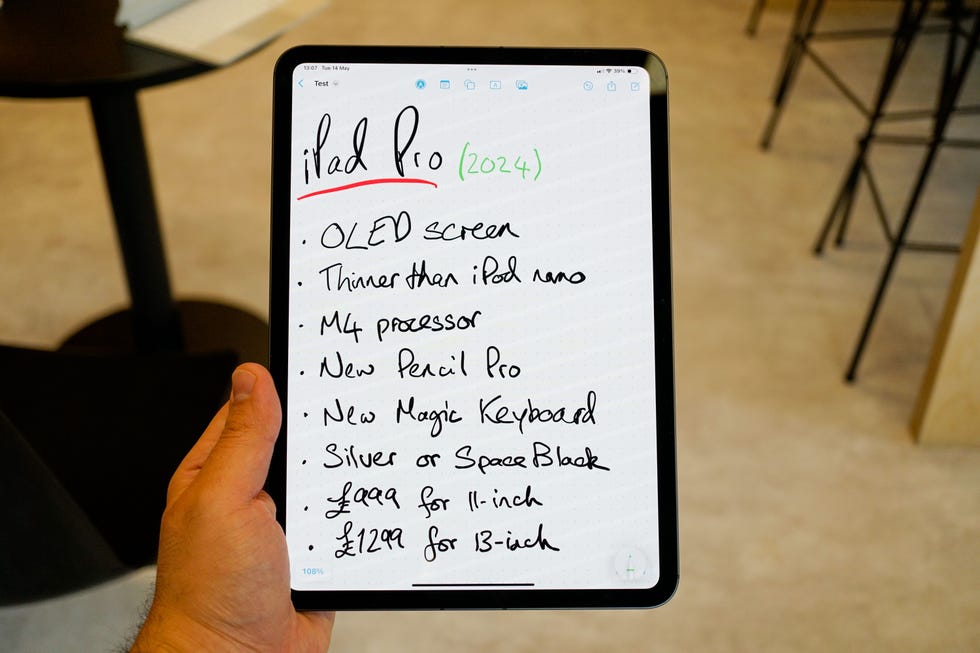 13:07 Tue 14 May
39%
Test
iPad Pro (2024)
· OLED screen
· Thinner than iPod nano
· M4 processor
· New Pencil Pro
· New Magic Keyboard
· Silver or Space Black
· £999 for 11-inch
· £1299 for 13-inch
108%